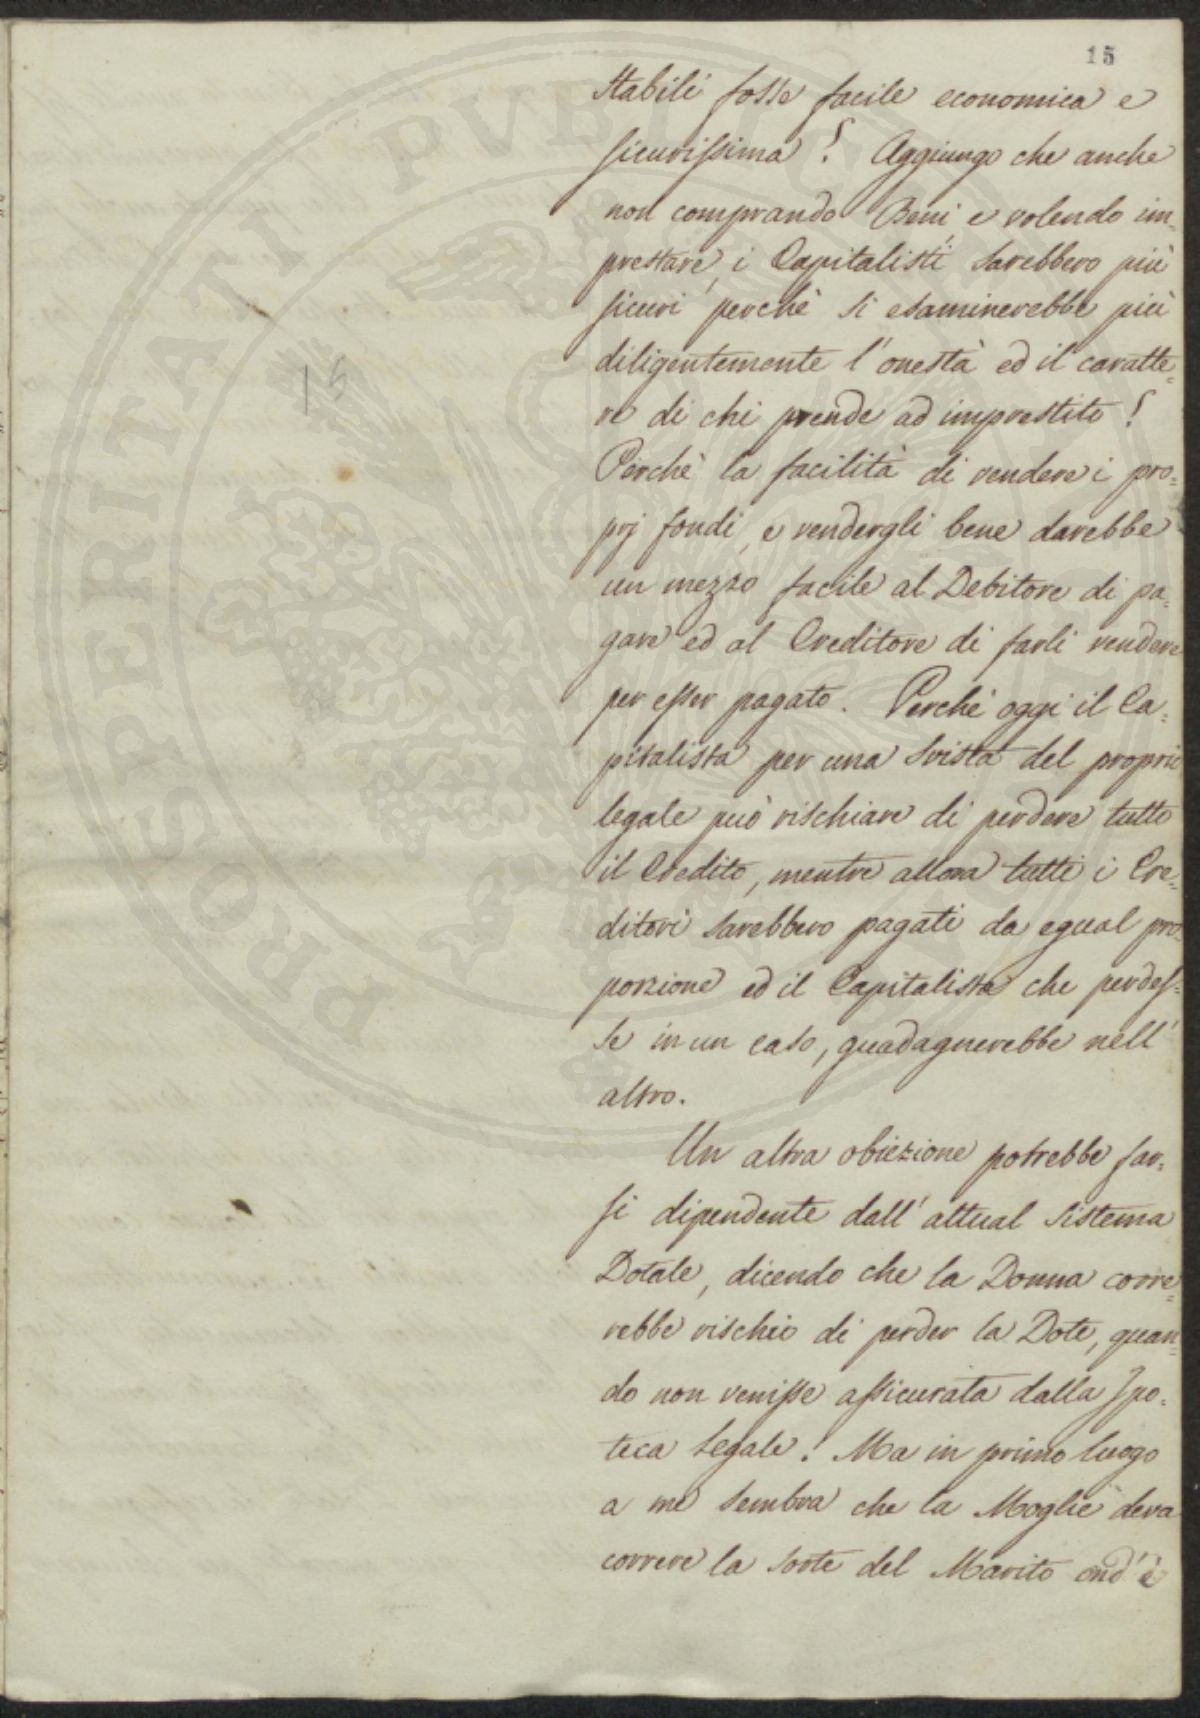 15
Stabili fosse facile economica e
sicurissima! Aggiungo che anche
non comprando Beni, e volendo im=
prestare, i Capitalisti sarebbero più
sicuri perchè si esaminerebbe più
diligentemente l'onestà ed il caratte=
re di chi prende ad imprestito!
Perchè la facilità di vendere i pro=
prj fondi, e vendergli bene darebbe
un mezzo facile al Debitore di pa=
gare ed al Creditore di farli vendere
per esser pagato. Perchè oggi il Ca=
pitalista per una svista del proprio
legale può rischiare di perdere tutto
il Credito, mentre allora tutti i Cre=
ditori sarebbero pagati da egual pro=
porzione ed il Capitalista che perdes=
se in un caso, guadagnerebbe nell'
altro.
Un altra obiezione potrebbe far=
si dipendente dall'attual sistema
Dotale, dicendo che la Donna corre=
rebbe rischio di perder la Dote, quan=
do non venisse assicurata dalla Ipo=
teca legale! Ma in primo luogo
a me sembra che la Moglie deva
correre la sorte del Marito ond'è
15
PROSPERITATI PVBLICAE